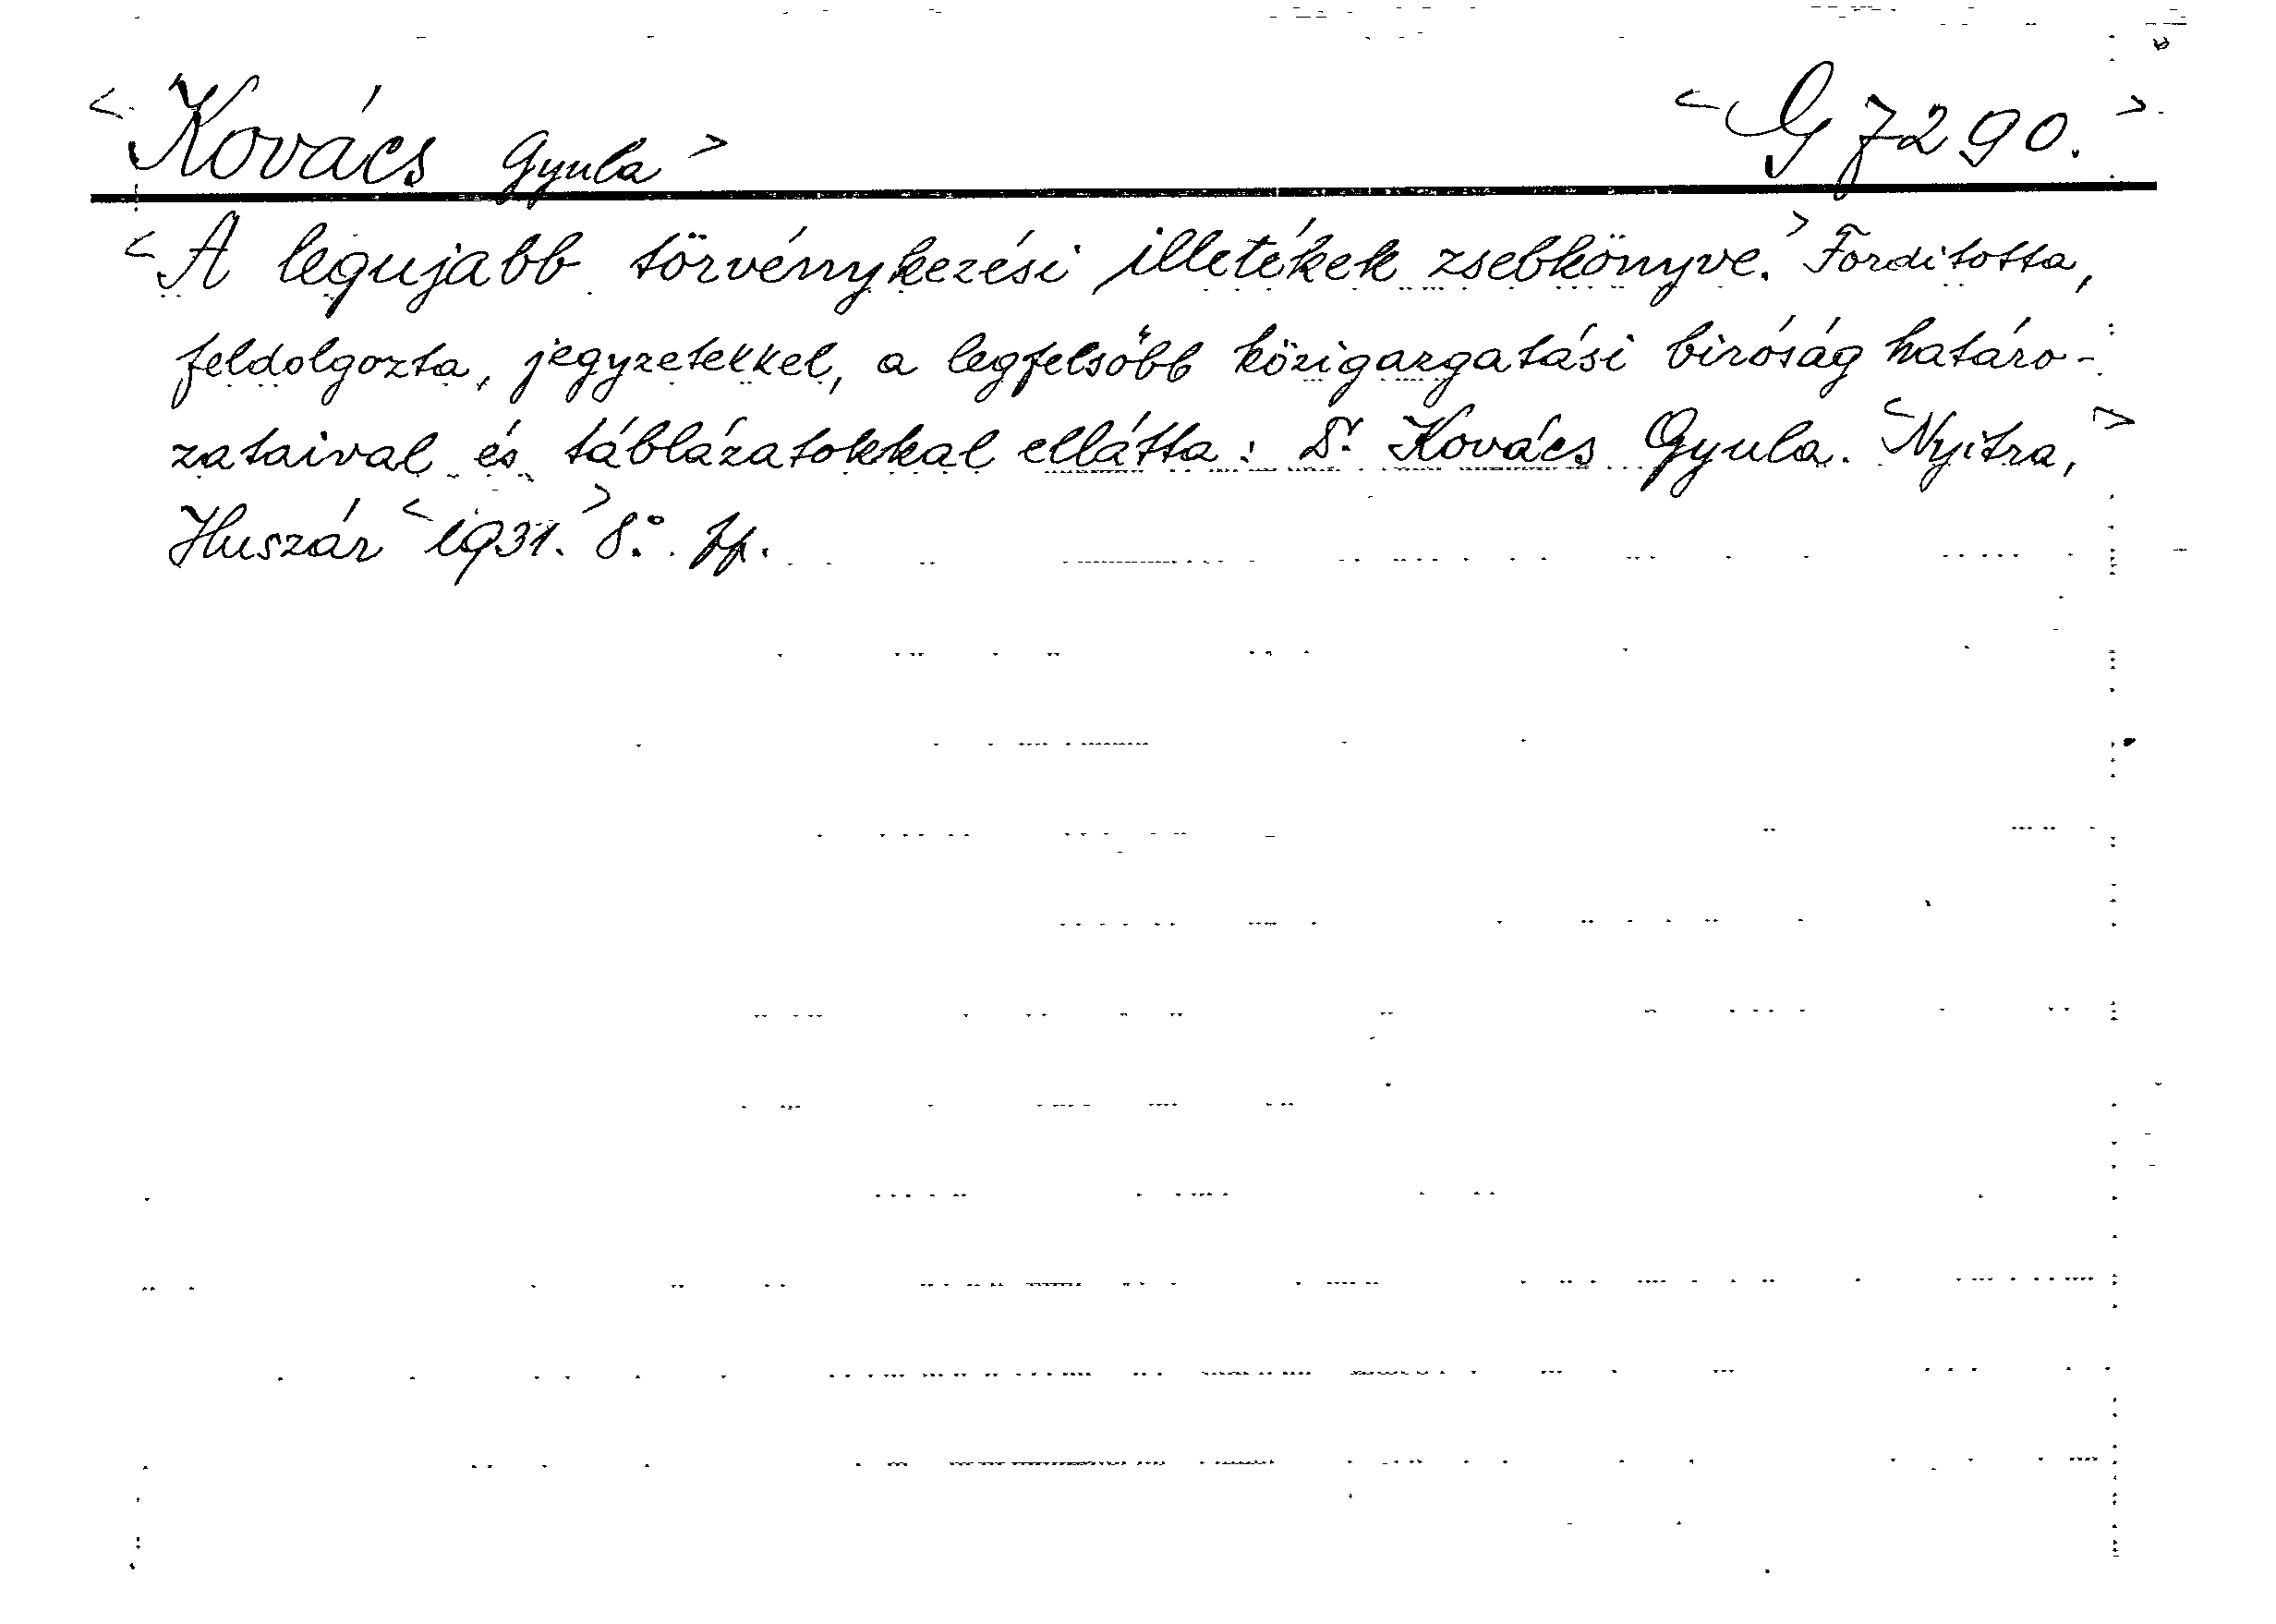 <Kovács Gyula> <G 7290.>
<A legujabb törvénykezési illetékek zsebkönyve.> Forditotta,
feldolgozta, jegyzetekkel, a legfelsőbb közigazgatási biróság határo-
zataival és táblázatokkal ellátta: Dr. Kovács Gyula. <Nyitra,>
Huszár <1931.> 8.°